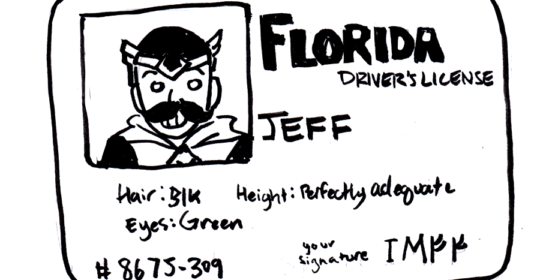 FLORIDA
DRIVER'S LICENSE
JEFF
Hair: Blk Height: Perfectly adequate
Eyes: Green
your signature
# 8675-309